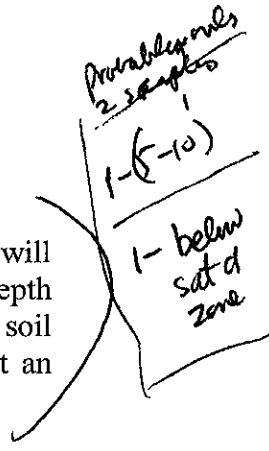 Probably only
2 samples
1-(5-10)'
1- below
sat'd
zone
will
epth
soil
t an